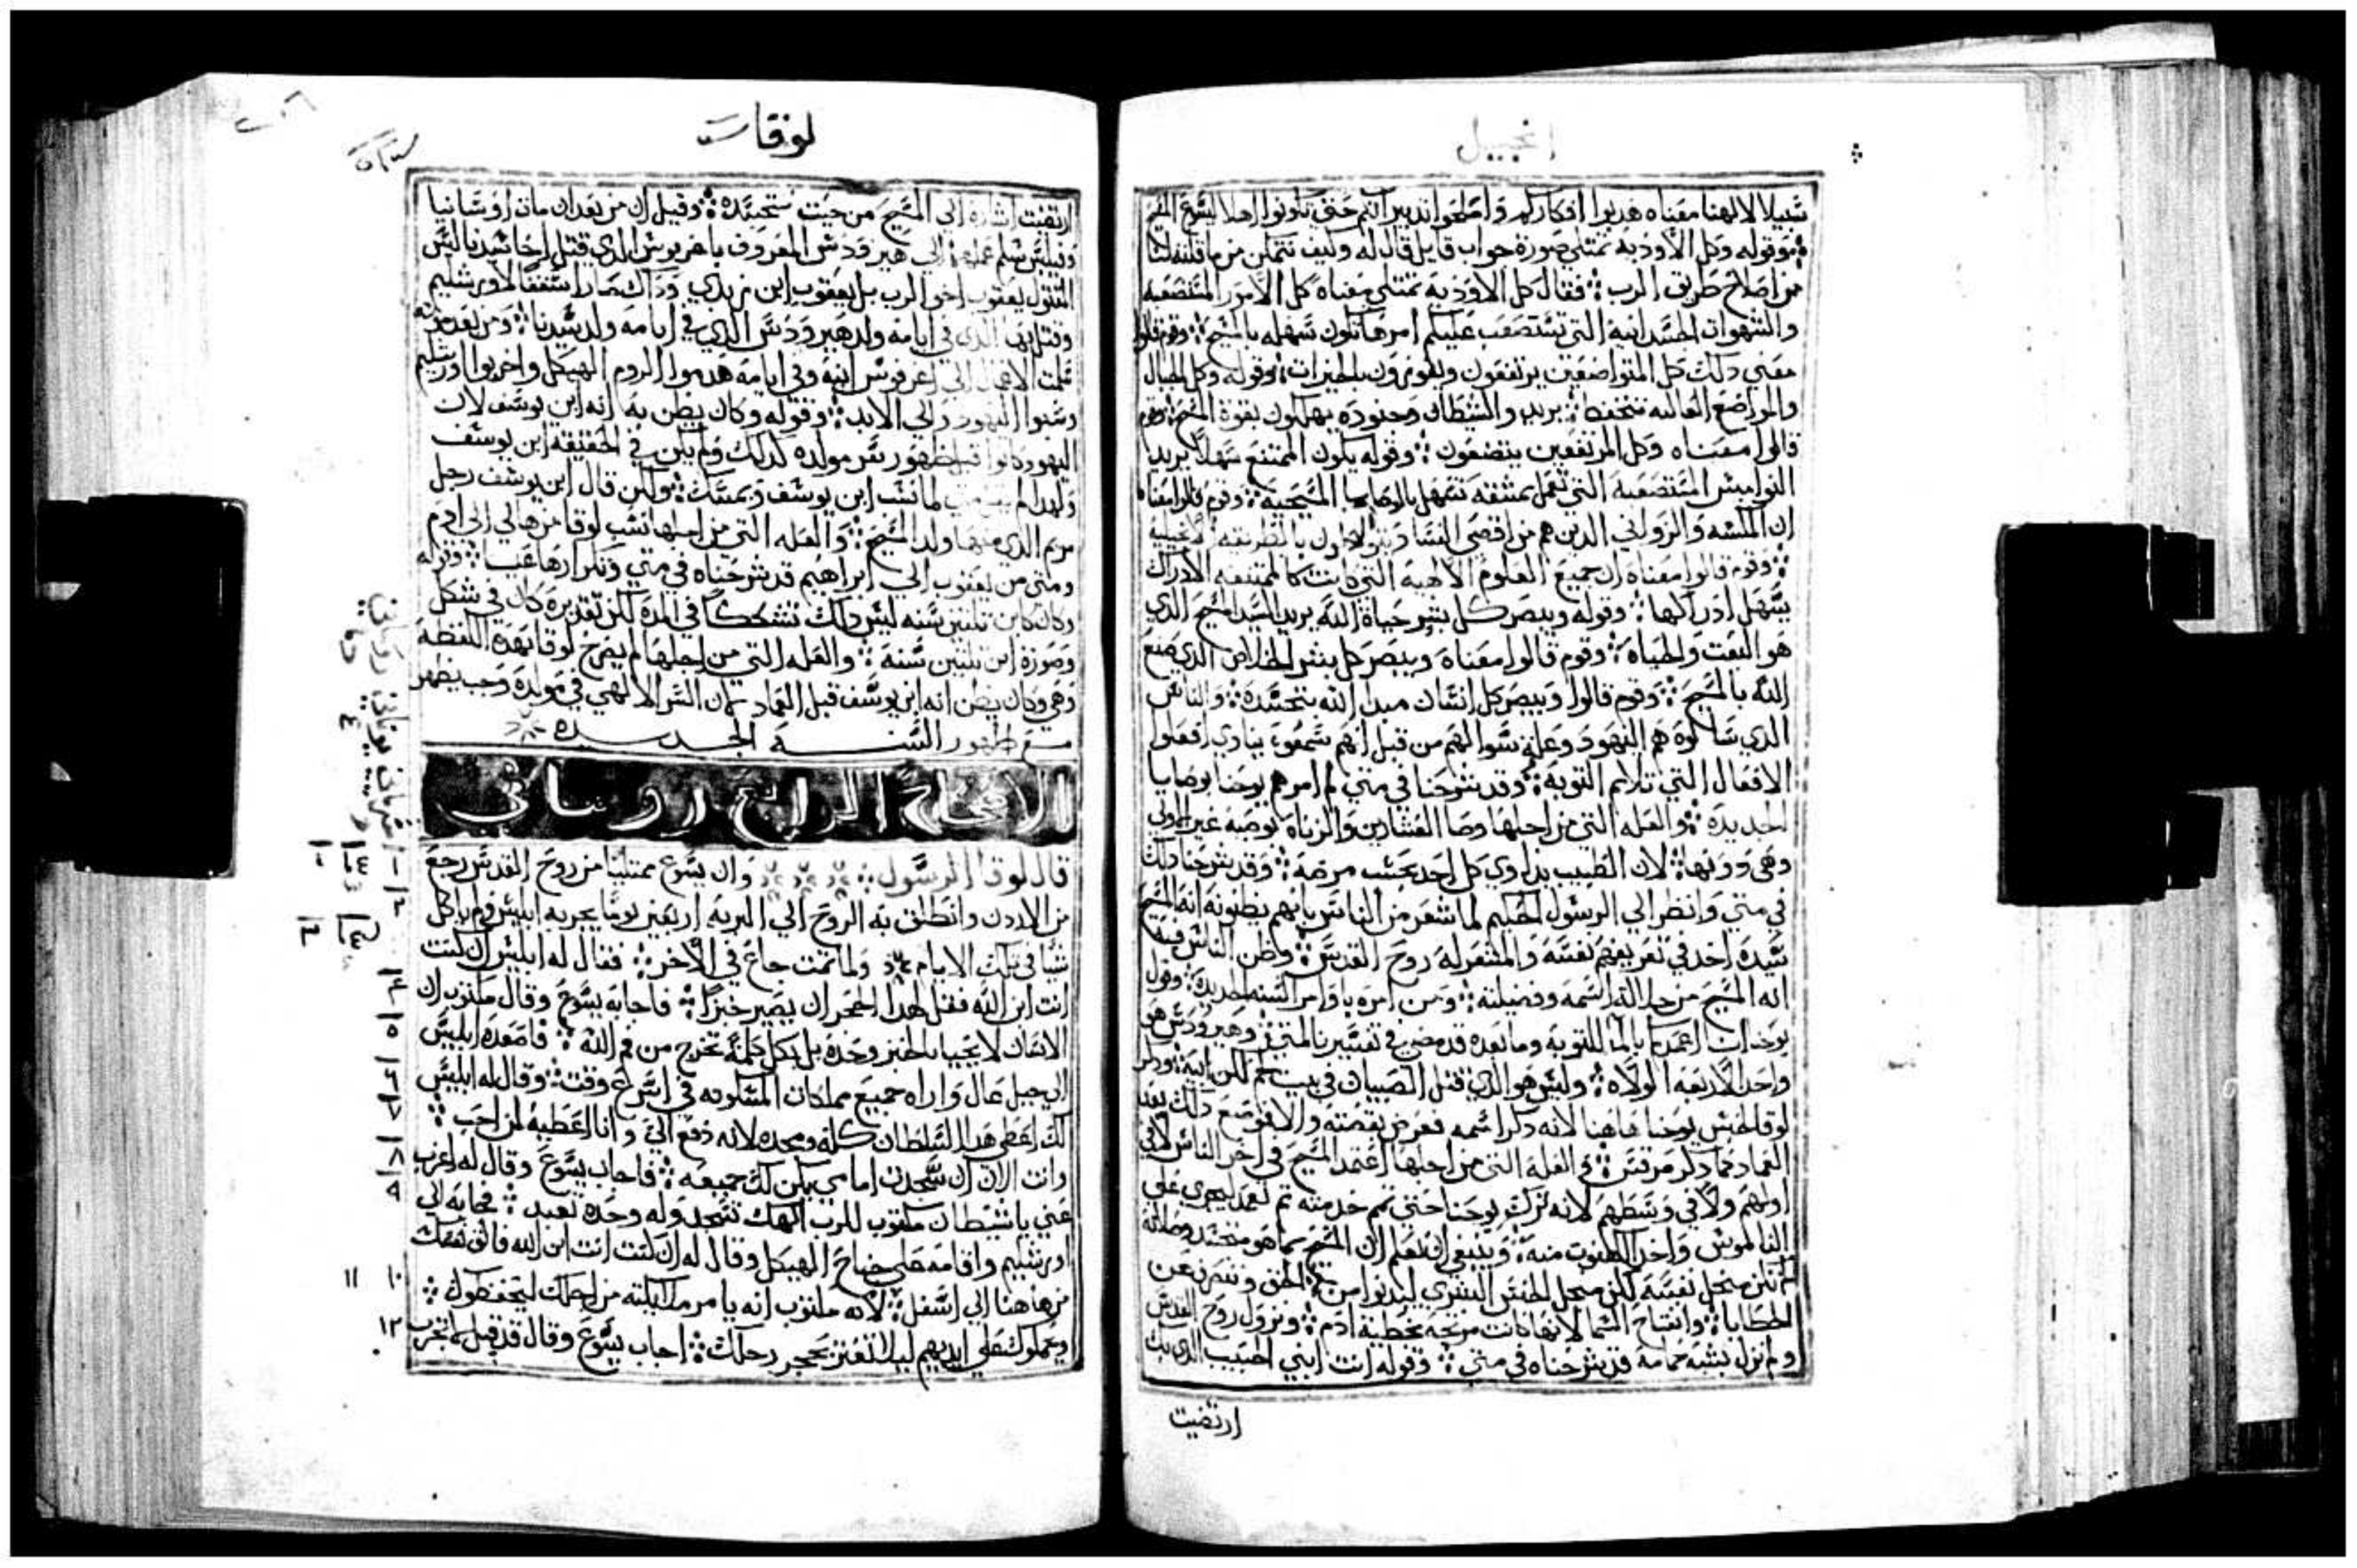 إنجيل
سبيلا لالهنا معناه هدبوا افكاركم واصلحوا تدبيراتكم حتى تكونوا اهلا ليسوع المسيح
وقوله وكل الأودية تمتلي صورة جواب قايل قال له وكيف نتمكن من ما قلته لنا
من اصلاح طريق الرب فقال كل الاودية تمتلي معناه كل الأمور المتصعبه
والشهوات الجسدانية التي تستصعب عليكم امرها تكون سهله بالمسيح وقوم قالوا
معني دلك كل المتواضعين يرتفعون ويفوزون بالخيرات وقوله وكل الجبال
والمواضع العاليه تنخفض يريد والشطان وجنوده يهلكون بقوة المسيح وقوم
قالوا معناه وكل المرتفعين يتضعون وقوله يكون الممتنع سهلا يريد
النواميس المستصعبة التي تعمل بمشقه تسهل بالوصايا المسيحية وقوم قالوا معناه
ان المكسه والزواني الدين هم من اقصى
وقوم قالوا معناه ان جميع العلوم الألاهية التي كانت كالممتنعه الأدراك
يسهل ادراكها وقوله ويبصر كل بشر حياة الله يريد السيد المسيح الدي
هو البعت والحياه وقوم قالوا معناه ويبصر كل بشر الخلاص الدي صنع
الله بالمسيح وقوم قالوا ويبصر كل انسان مبدا الله بتجسده والناس
الدي سالوه هم اليهود وعلة سوالهم من قبل انهم سمعوه ينادي افعلوا
الافعال التي تلايم التوبة وقد شرحنا في متي لم امرهم يوحنا بوصايا
الجديدة والعله التي من اجلها وصا العشارين والزناه بوصيه غير الاولي
وهي دونها لان الطبيب يداوي كل احد بحسب مرضه وقد شرحنا دلك
في متي وانظر الي الرسول الحكيم لما شعر من الناس بانهم يظنونه انه المسيح
سيده اخد في تعريفهم نفسه والمنتظر له روح القدس وظن الناس فيه
انه المسيح من جلالة اسمه وفضيلته ومن امره باوامر السنه الجديدة وقول
يوحنا اعمدكم بالما للتوبة وما بعده قد مضى في تفسيرنا لمتي وهيرودس هو
واحد الاربعه الولاه وليس هو الدي قتل الصبيان في بيت لحم لكن ابنه ودكر
لوقا لحبس يوحنا هاهنا لانه دكر اسمه فعرض بقصته والا موضع دلك بعد
العماد كما دكر مرقس والعلة التي من اجلها اعتمد المسيح في اخر الناس لا في
اولهم ولا في وسطهم لانه ترك يوحنا حتى تمم خدمته ثم تعمد ليجري علي
الناموس واخد الكهنوت منه وينبغي ان تعلم ان المسيح بما هو متجسد وصلاته
لم تكن من اجل نفسه لكن من اجل الجنس البشري ليدنوا من الحق وننصرف عن
الخطايا وانفتاح السما لانها كانت مرتجه بخطية ادم ونزول روح القدس
ولم نزل بشبه حمامة قد شرحناه في متي وقوله انت ابني الحبيب الدي بك
ارتضيت
لوقاس
ارتضيت اشارة الي المسيح من حيت تجسده وقيل ان من بعد ان مات اوسانيا
وفيلبس سلم عملهم الي هيرودس المعروف باغريوس الدي قتل اخا سيدنا ليس
المقتول يعقوب اخو الرب بل يعقوب ابن زبدي وداك صار اسقفا لاورشليم
وقتل بها الدي في ايامه ولد هيرودس الدي في ايامه ولد سيدنا ومن بعد موته
سلمت الاعمال الي اغرفوس ابنه وفي ايامه هدموا الروم الهيكل واخربوا اورشليم
وسبوا اليهود والي الابد وقوله وكان يظن به انه ابن يوسف لان
اليهود كانوا قبل ظهور سر مولده كدلك ولم يكن في الحقيقة ابن يوسف
مريم الدي منها ولد المسيح والعله التي من اجلها نسب لوقا من هالي الى ادم
ومتى من يعقوب الى ابراهيم قد شرحناه في متي وتكرارها عبتا وقوله
وكان كابن تلتين سنه ليس دلك تشككا في المدة لكن تقديره كان في شكل
وصورة ابن تلتين سنة والعله التي من اجلها لم يصرح لوقا بهده اللفظة
وهي وكان يظن انه ابن يوسف قبل العماد كان السر الالهي في مولده وجب يظهر
مع ظهور السنه الجديده
الاصحاح الرابع روماني
قال لوقا الرسول وان يسوع ممتليا من روح القدس رجع
من الاردن وانطلق به الروح الي البريه اربعين يوما يجربه ابليس ولم ياكل
شيا في تلك الايام ولما تمت جاع في الأخر فقال له ابليس ان كنت
انت ابن الله فقل لهدا الحجر ان يصير خبزا فاجابه يسوع وقال مكتوب ان
الانسان لا يحيا بالخبز وحده بل بكل كلمة تخرج من فم الله فاصعده ابليس
الي جبل عال واراه جميع مملكات المسكونه في اسرع وقت وقال له ابليس
لك اعطي هدا السلطان كله ومجده لانه دفع الي وانا اعطيه لمن احب
وانت الان ان سجدت امامي يكن لك جميعه فاجاب يسوع وقال له اعزب
عني يا شيطان مكتوب للرب الهك تسجد وله وحده تعبد فجابه الي
اورشليم واقامه علي جناح الهيكل وقال له ان كنت انت ابن الله فالق نفسك
من هاهنا الي اسفل لانه مكتوب انه يامر ملايكته من اجلك ليحفظوك
ويحملوك علي ايديهم ليلا تعتر بحجر رجلك اجاب يسوع وقال قد قيل لا تجرب